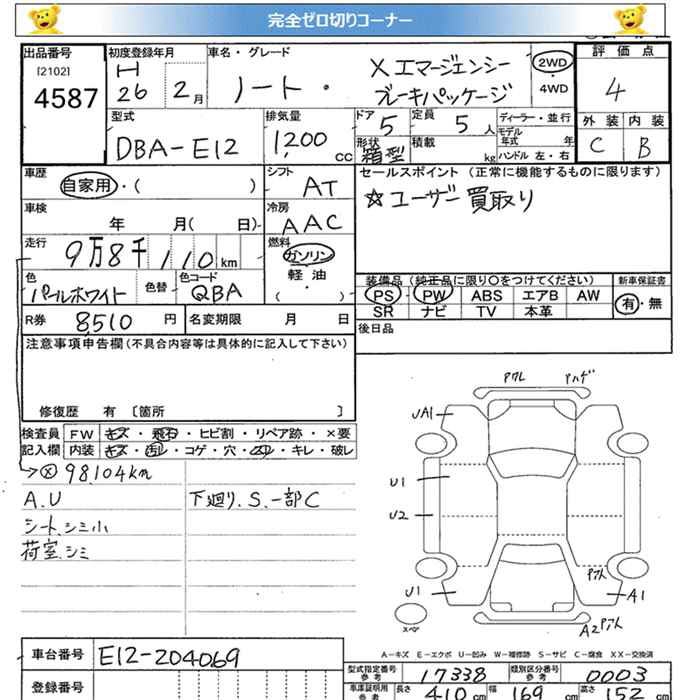 完全ゼロ切りコーナー
出品番号
[2102]
4587
初度登録年月
H
26 2月
車名・グレード
ノート・ X エマージェンシー
ブレーキパッケージ
2WD
・
4WD
評価点
4
外装 内装
C B
型式
DBA-E12
排気量
1,200 cc
ドア 5
定員 5人
形状 箱型
積載 kg
ディーラー・並行
モデル年式 年
ハンドル 左・右
車歴
自家用・( )
シフト
AT
セールスポイント (正常に機能するものに限ります)
☆ユーザー買取り
車検
年 月( 日)
冷房
AAC
走行
9万8千110km
燃料
ガソリン
軽・油
・( )
色
パールホワイト
色替
色コード
QBA
装備品(純正品に限り○をつけてください)
新車保証書
PS PW ABS エアB AW
SR ナビ TV 本革
有・無
R券 8510 円
名変期限 月 日
後日品
注意事項申告欄(不具合内容等は具体的に記入して下さい)
修復歴 有 〔箇所 〕
検査員
記入欄
FW キズ・飛石・ヒビ割・リペア跡・×要
内装 キズ・汚レ・コゲ・穴・スレ・キレ・破レ
98,104km
A.U
下廻り.S.一部C
シート.シミ小
荷室.シミ
アクレ
アハゲ
UA1
U1
U2
U1
Pアス
A1
A2Pアス
スペア
A-キズ E-エクボ U-凹み W-補修跡 S-サビ C-腐食 XX-交換済
車台番号 E12-204069
登録番号
型式指定番号
参考
17338
類別区分番号
参考
0003
車庫証明用
参考
長さ 410cm 幅 169cm 高さ 152cm